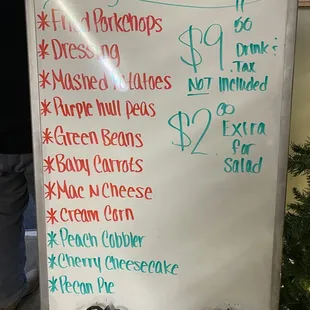 *Fried Porkchops
*Dressing
*Mashed Potatoes
*Purple hull peas
*Green Beans
*Baby Carrots
*Mac N Cheese
*Cream Corn
*Peach Cobbler
*Cherry Cheesecake
*Pecan Pie
$9 50
Drink &
Tax
NOT Included
$2 00
Extra
for
Salad